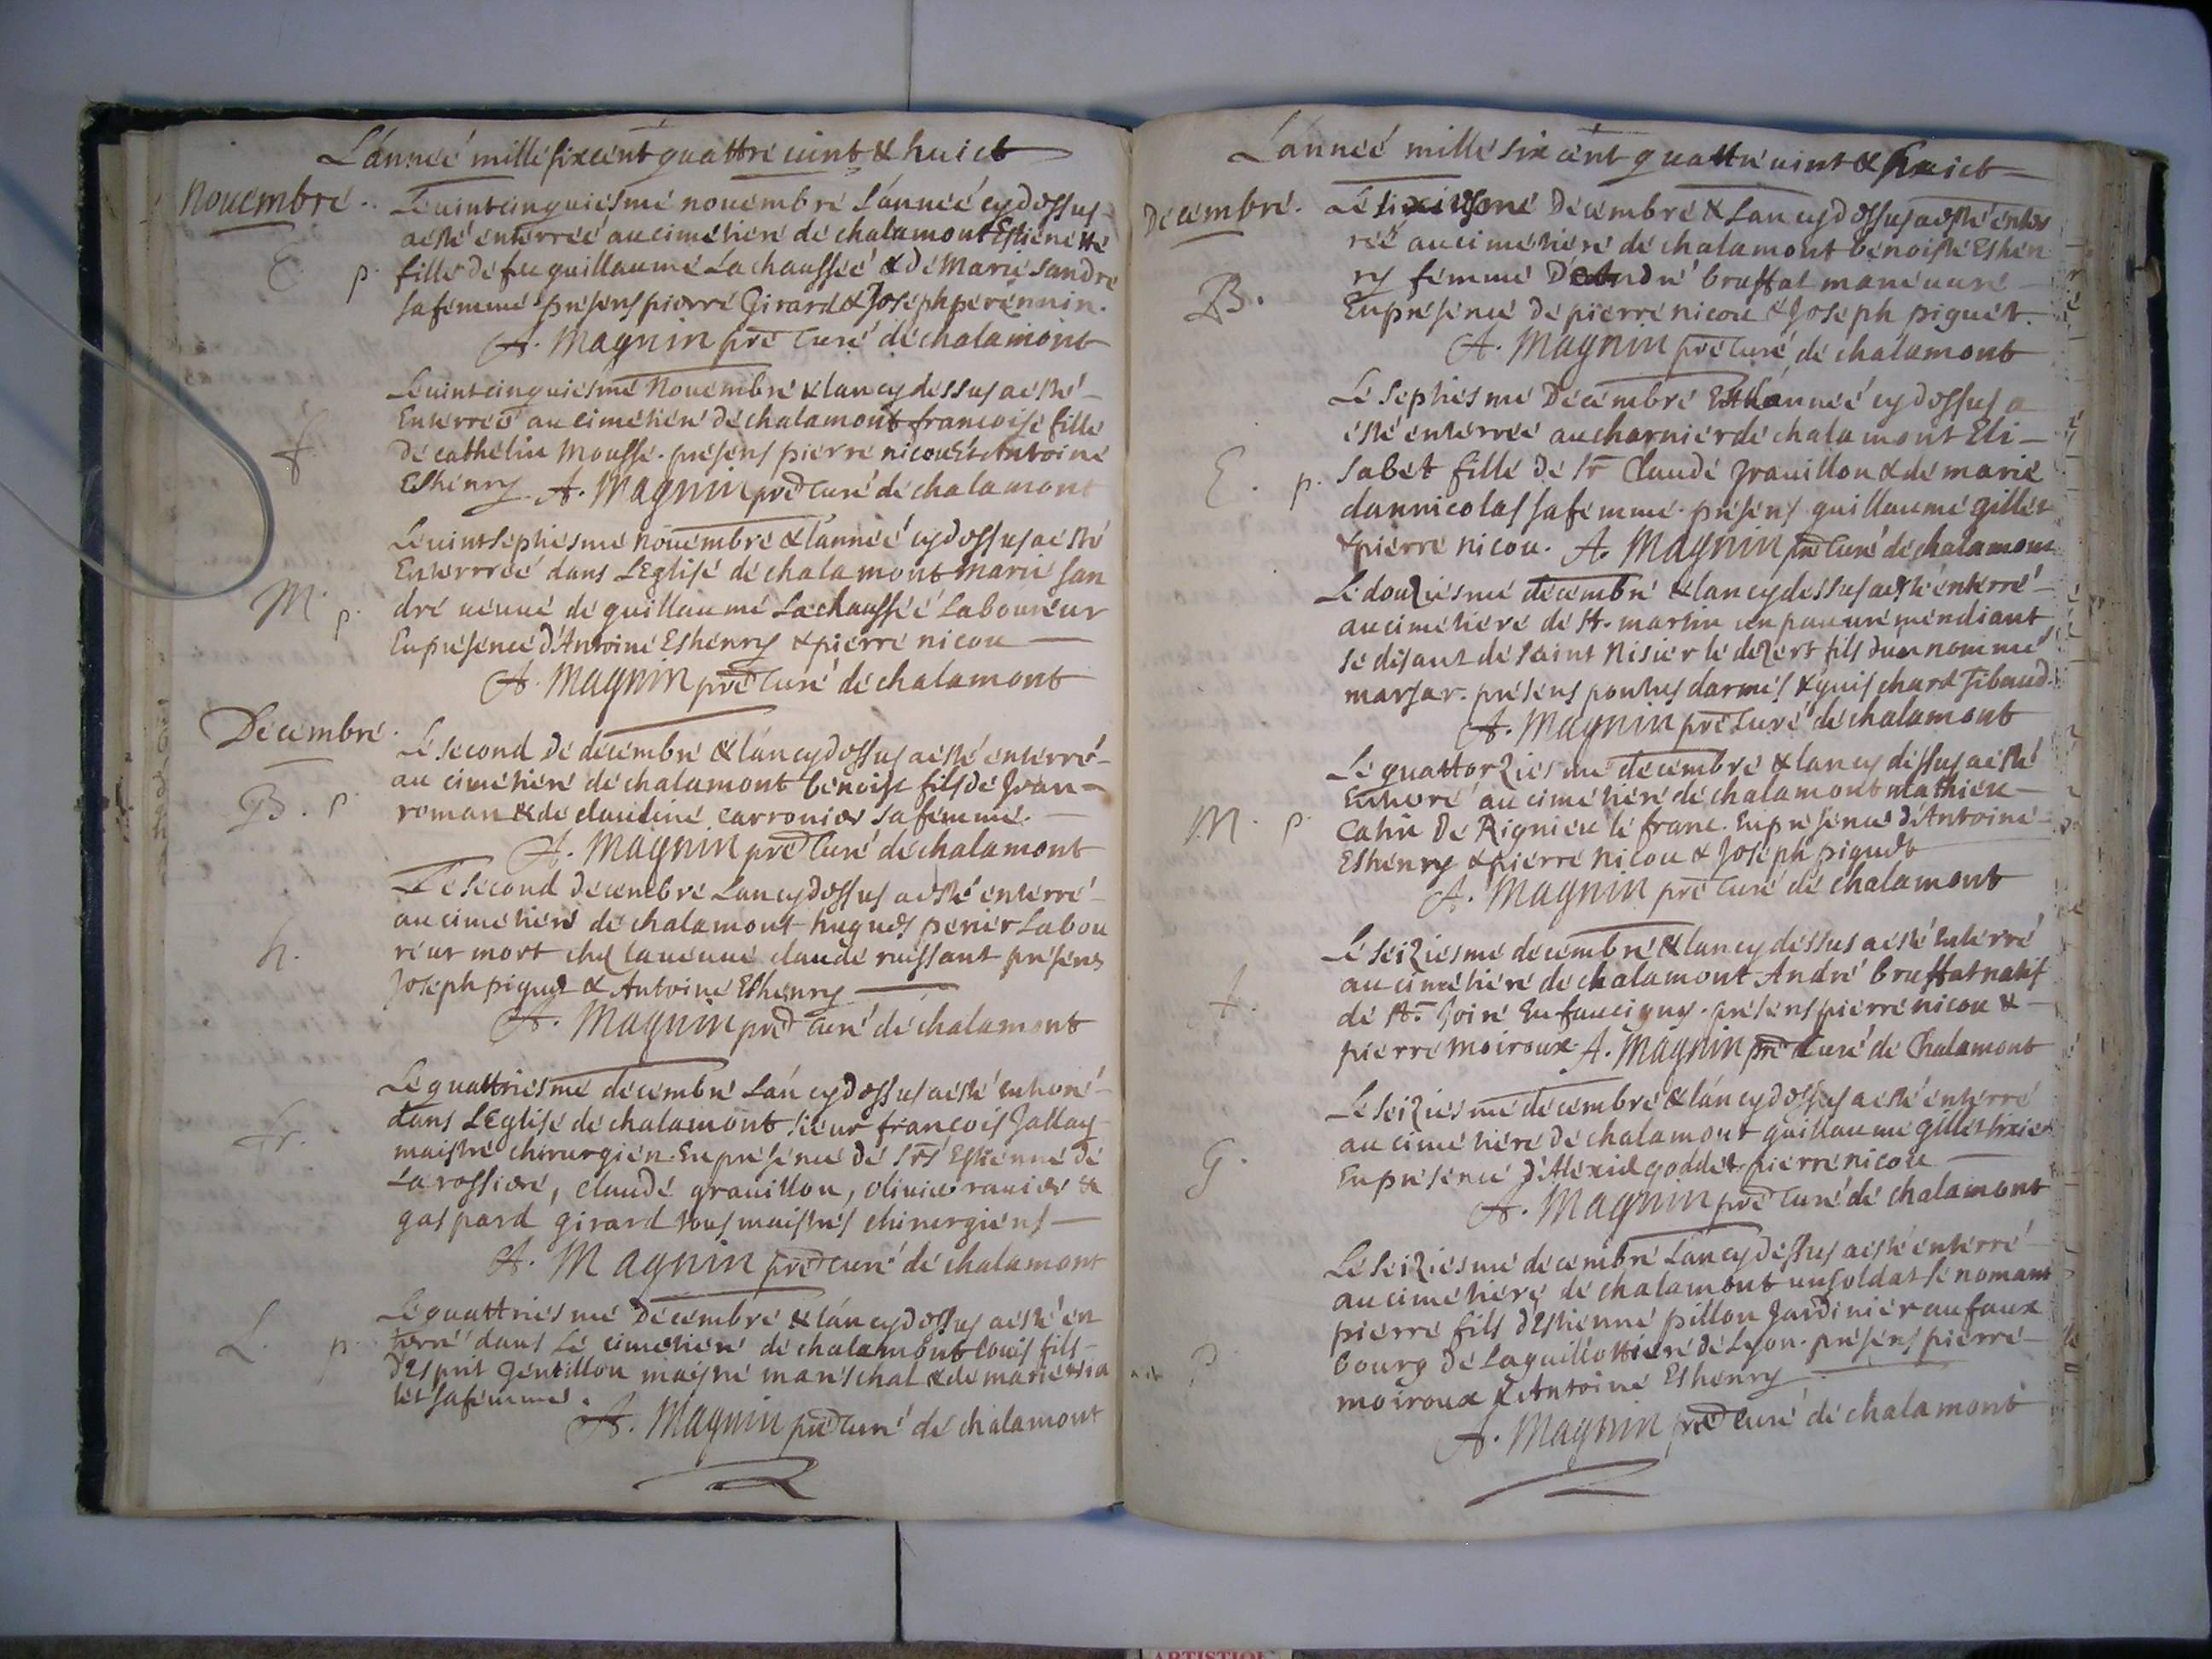 L'année mille six cent quattre uint & huict
Nouembre.
Le uintcinquiesme nouembre l'année cy dessus
a esté enterrée au cimetiere de chalamont Estienette
E. p. fille de feu guillaume Lachaussée & de Marie sandre
sa femme presens pierre Girard & Joseph perennin.
A. Magnin pre Curé de chalamont
Le uintcinquiesme Nouembre & lan cy dessus a esté
Enterrée au cimetiere de chalamont francoise fille
f de cathelin Mousse. presens pierre nicou Et Antoine
Esthenry. A. Magnin pre Curé de chalamont
Le uintseptiesme nouembre & lannée cy dessus a esté
Enterrrée dans L'Eglise de chalamont marie san
M. p. dre ueuue de guillaume Lachaussée Laboureur
En presence d'Antoine Esthenry & pierre nicou
A. Magnin pre Curé de chalamont
Decembre.
Le second de decembre & l'an cy dessus a esté enterré
au cimetiere de chalamont benoist fils de Jean
B. p. roman & de claudine carronier sa femme.
A. Magnin pre Curé de chalamont
Le second decembre Lan cy dessus a esté enterré
au cimetiere de chalamont hugues perier Labou
h. reur mort chez la ueuue claude ruissant presens
Joseph piguet & Antoine Esthenry
A. Magnin pre Curé de chalamont
Le quattriesme decembre L'an cy dessus a esté enterré
dans L'Eglise de chalamont sieur francois Jallay
fr. maistre chirurgien. En presence de srs Estienne de
La rossiere, claude grauillon, oliuier rauier &
gaspard girard tous maistres chirurgiens
A. Magnin pre Curé de chalamont
Le quattriesme Decembre & l'an cy dessus a esté en
L. p. terré dans Le cimetiere de chalamont louis fils
d'Esprit gentillon maistre mareschal & de marie
let sa femme.
A. Magnin pre Curé de chalamont
L'année mille six cent quattre uint & huict
Decembre.
Le sixiesme Decembre & Lan cy dessus a esté enter
rée au cimetiere de chalamont benoiste Esthen
B. ry femme D'Andre bruffat maneuure
En presence de pierre nicou & Joseph piguet.
A. Magnin pre Curé de chalamont
Le septiesme Decembre Et L'année cy dessus a
esté enterrée au charnier de chalamont Eli
E. p. sabet fille de Sr Claude grauillon & de marie
dannicolas sa femme. presens guillaume gillet
& pierre nicou. A. Magnin pre Curé de chalamont
Le douziesme decembre & lan cy dessus a esté enterré
au cimetiere de St. martin un pauure mendiant
se disant de saint Nisier le dezert fils d'un nommé
marsar. presens pontus darmes & guischard Tibaud.
A. Magnin pre Curé de chalamont
Le quattorziesme decembre & lan cy dessus a esté
Enterré au cimetiere de chalamont mathieu
M. p. Catin de Rignieu le franc. En presence d'Antoine
Esthenry & pierre nicou & Joseph piguet
A. Magnin pre Curé de chalamont
Le seiziesme decembre & lan cy dessus a esté enterré
au cimetiere de chalamont André bruffat natif
A. de St. Joire En faucigny. presens pierre nicou &
pierre Moiroux A. Magnin pre Curé de Chalamont
Le seiziesme decembre & l'an cy dessus a esté enterré
au cimetiere de chalamont guillaume gillet
G. En presence d'Alexis goddet pierre nicou
A. Magnin pre Curé de chalamont
Le seiziesme decembre L'an cy dessus a esté enterré
au cimetiere de chalamont un soldat se nomant
pierre fils d'Estienne pillon Jardinier au faux
P. bourg de La guillottiere de Lyon. presens pierre
moiroux & Antoine Esthenry
A. Magnin pre Curé de chalamont